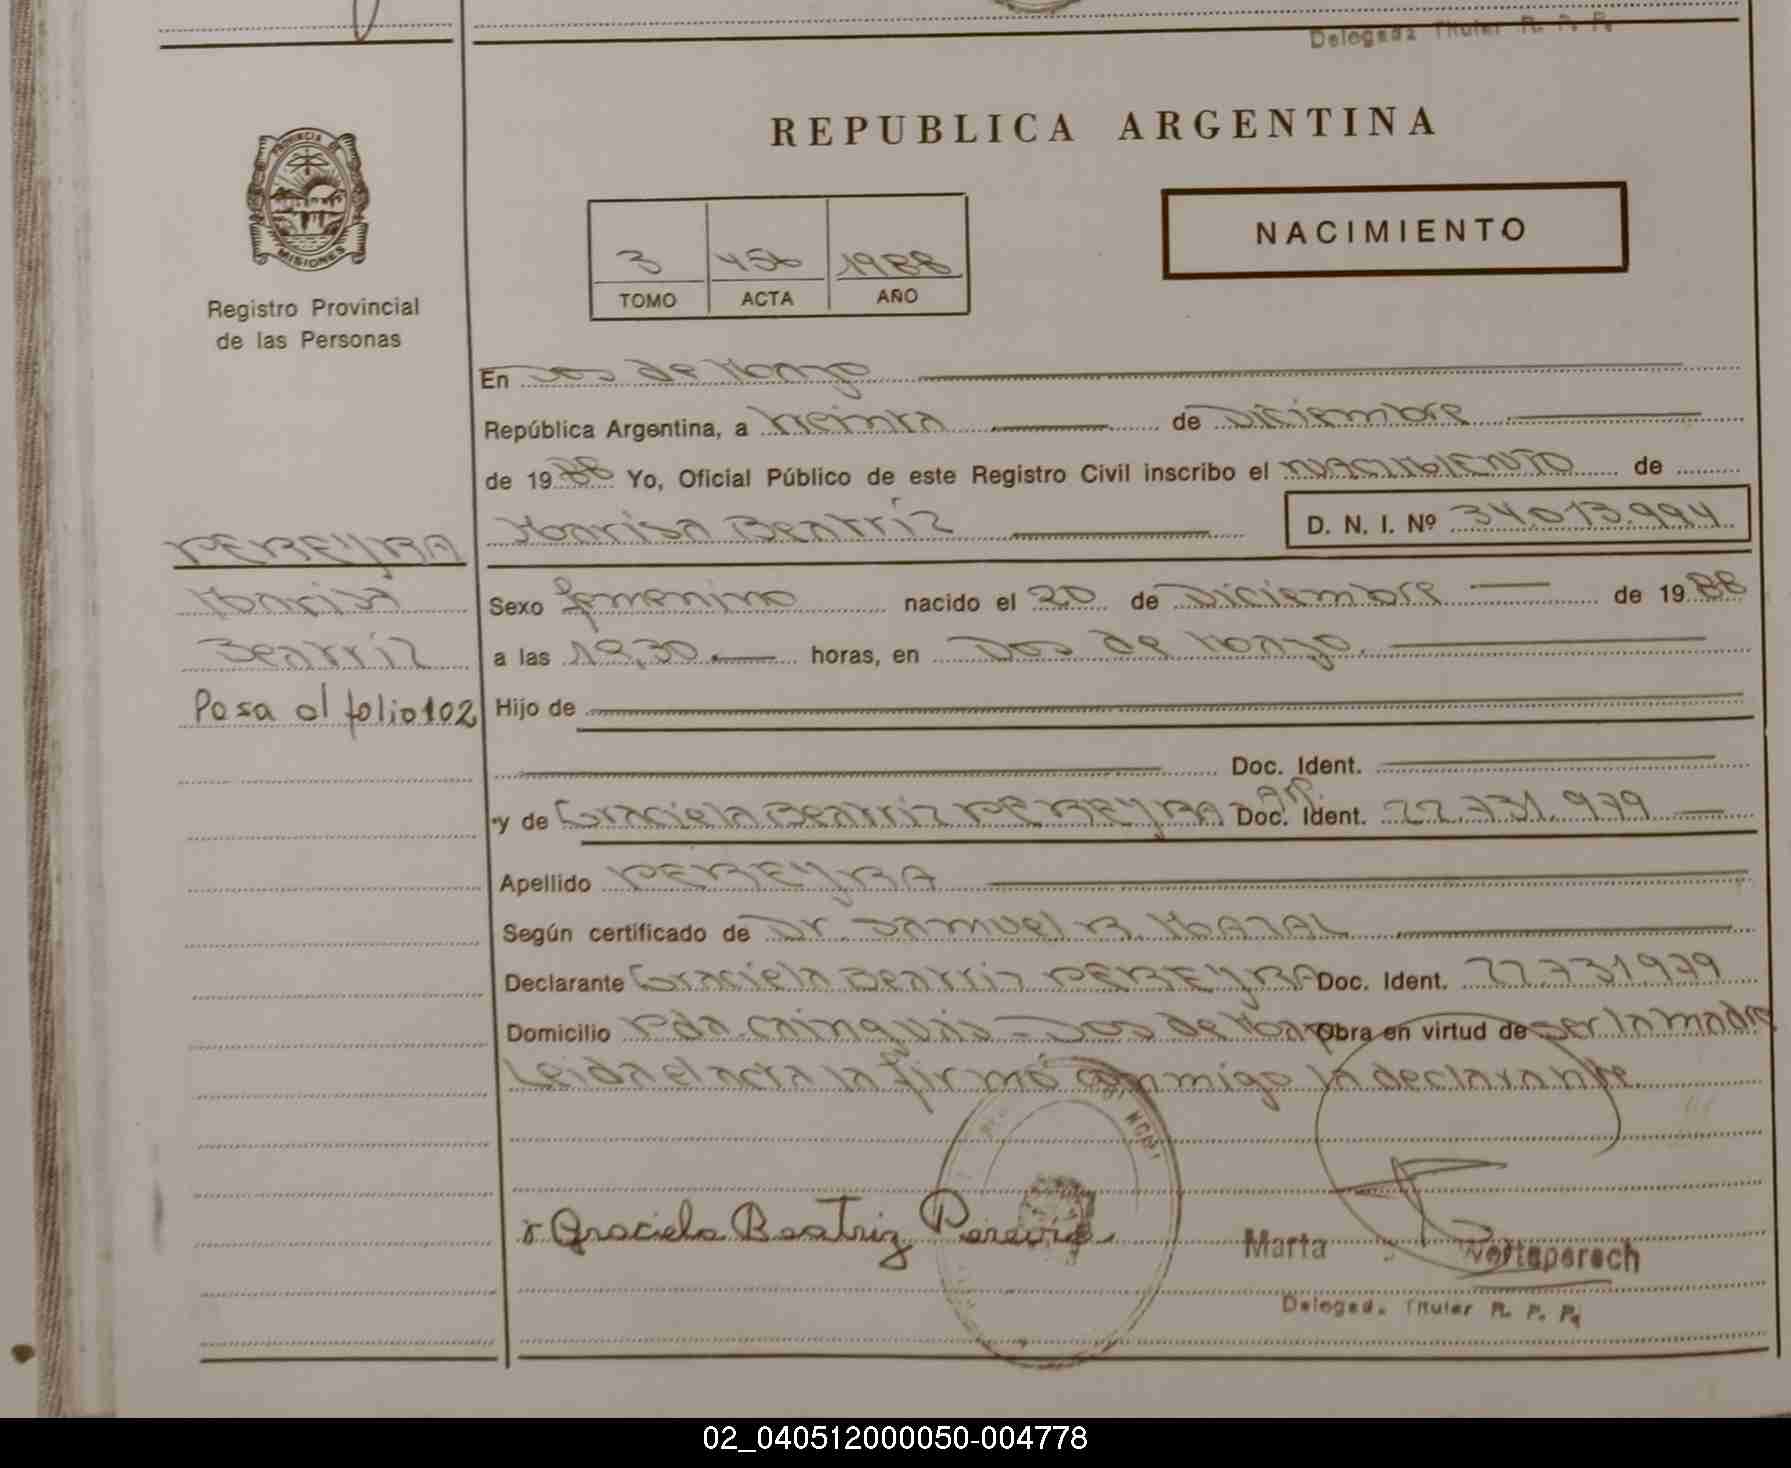 Delegada Titular R. P. P.
PROVINCIA
MISIONES
Registro Provincial
de las Personas
REPUBLICA ARGENTINA
NACIMIENTO
3 456 1988
TOMO ACTA AÑO
En Dos de Mayo
República Argentina, a treinta de Diciembre
de 1988 Yo, Oficial Público de este Registro Civil inscribo el NACIMIENTO de
Marisa Beatríz D. N. I. Nº 34.013.994
PEREYRA
Marisa
Beatríz
Pasa al folio 102
Sexo femenino nacido el 20 de Diciembre de 1988
a las 19,30 horas, en Dos de Mayo.
Hijo de
Doc. Ident.
y de Graciela Beatriz PEREYRA Doc. Ident. 22.731.979
Apellido PEREYRA
Según certificado de Dr. Samuel B.
Declarante Graciela Beatriz PEREYRA Doc. Ident. 22.731979
Domicilio Pda. - Dos de Mayo Obra en virtud de ser la madre
Leida el acta la firmó conmigo la declarante
Graciela Beatriz Pereira
Marta
Delegada Titular R. P. P.
02_040512000050-004778